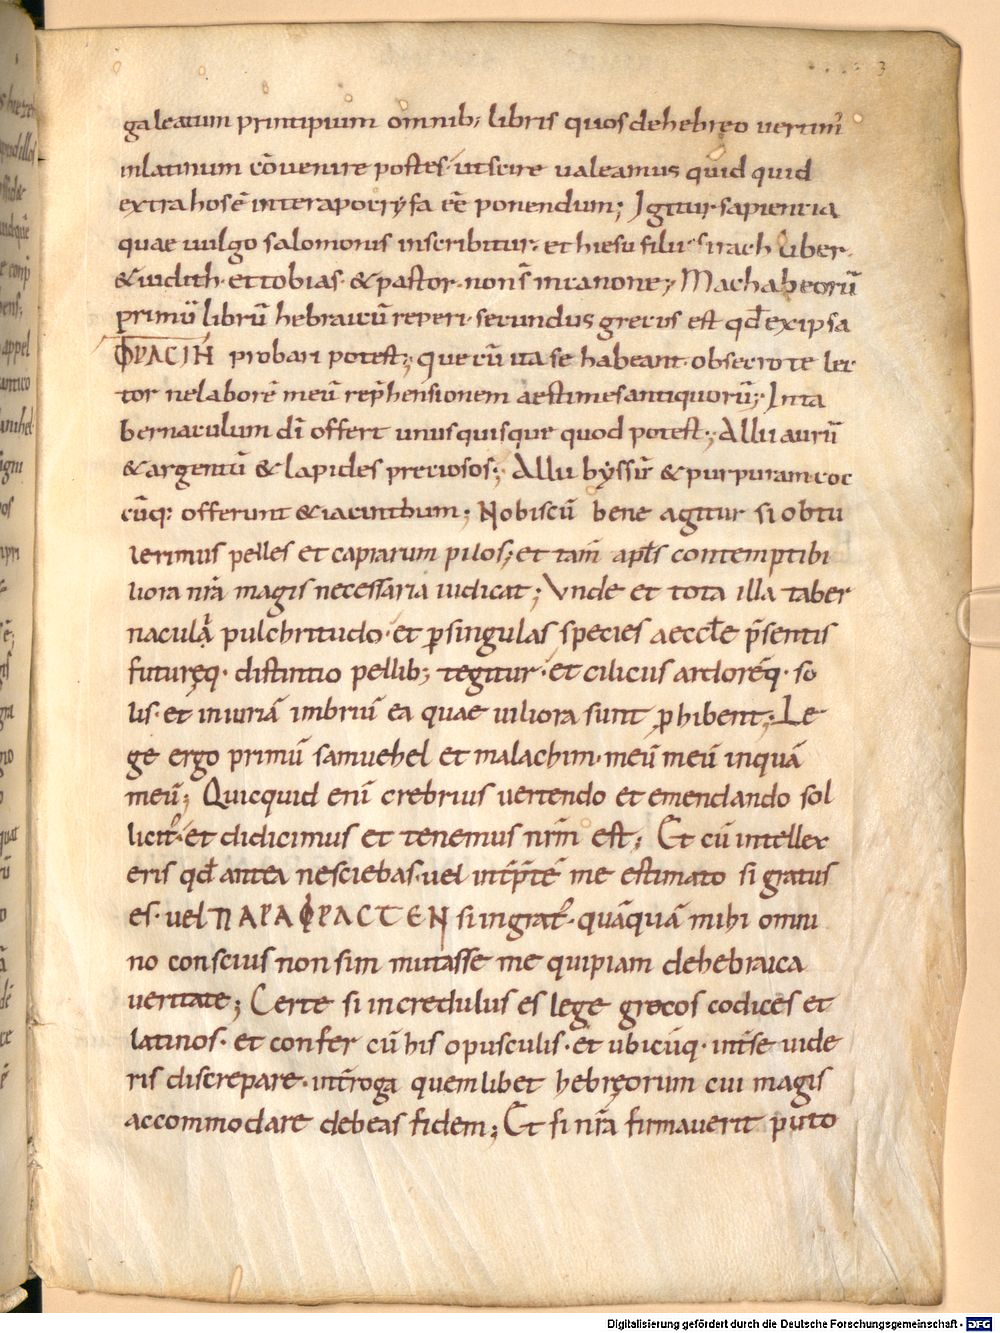 3
galeatum principium omnib; libris quos dehebreo vertim᷒
inlatinum cōvenire postes· utscire valeamus quid quid
extra hosē interapocryfa eē ponendum; Igitur sapientia
quae vulgo salomonis inscribitur· et hiesu filii sirach liber·
& iudith· et tobias· & pastor· nons̄ incanone; Machabeorū
primū librū hebraicū reperi· secundus grecus est qd̄ exipsa
ΦΡΑCΙΝ probari potest; que cū ita se habeant· obsecro te lec
tor nelaborē meū rep̄hensionem aestimes antiquorū; Inta
bernaculum dī offert unusquisque quod potest; Alii aurū
& argentū & lapides preciosos; Alii byssū & purpuram coc
cūq; offerunt & iacinthum; Nobiscū bene agitur si obtu
lerimus pelles et caprarum pilos; et tam̄ apl̄s contemptibi
liora nr̄a magis necessaria iudicat; Unde et tota illa taber
naculi pulchritudo· et ꝑsingulas species aeccl̄e p̄sentis
futureq· distinctio pellib; tegitur· et cilicius ardorēq· so
lis· et iniuriā imbriū ea quae viliora sunt ꝓhibent; Le
ge ergo primū samuehel et malachim· meū meū inquā
meū; Quicquid enī crebrius vertendo et emendando sol
licit᷒· et didicimus et tenemus nrm̄ est; Et cū intellex
eris qd̄ antea nesciebas· vel int̄p̄tē me estimato si gratus
es· vel ΠΑΡΑΦΡΑCΤΕΝ si ingrat᷒· quāquā mihi omni
no conscius non sim mutasse me quipiam dehebraica
veritate; Certe si incredulus es lege grecos codices et
latinos· et confer cū his opusculis· et ubicūq· int̄se vide
ris discrepare· int̄roga quemlibet hebręorum cui magis
accommodare debeas fidem; Et si nr̄a firmaverit puto
Digitalisierung gefördert durch die Deutsche Forschungsgemeinschaft - DFG